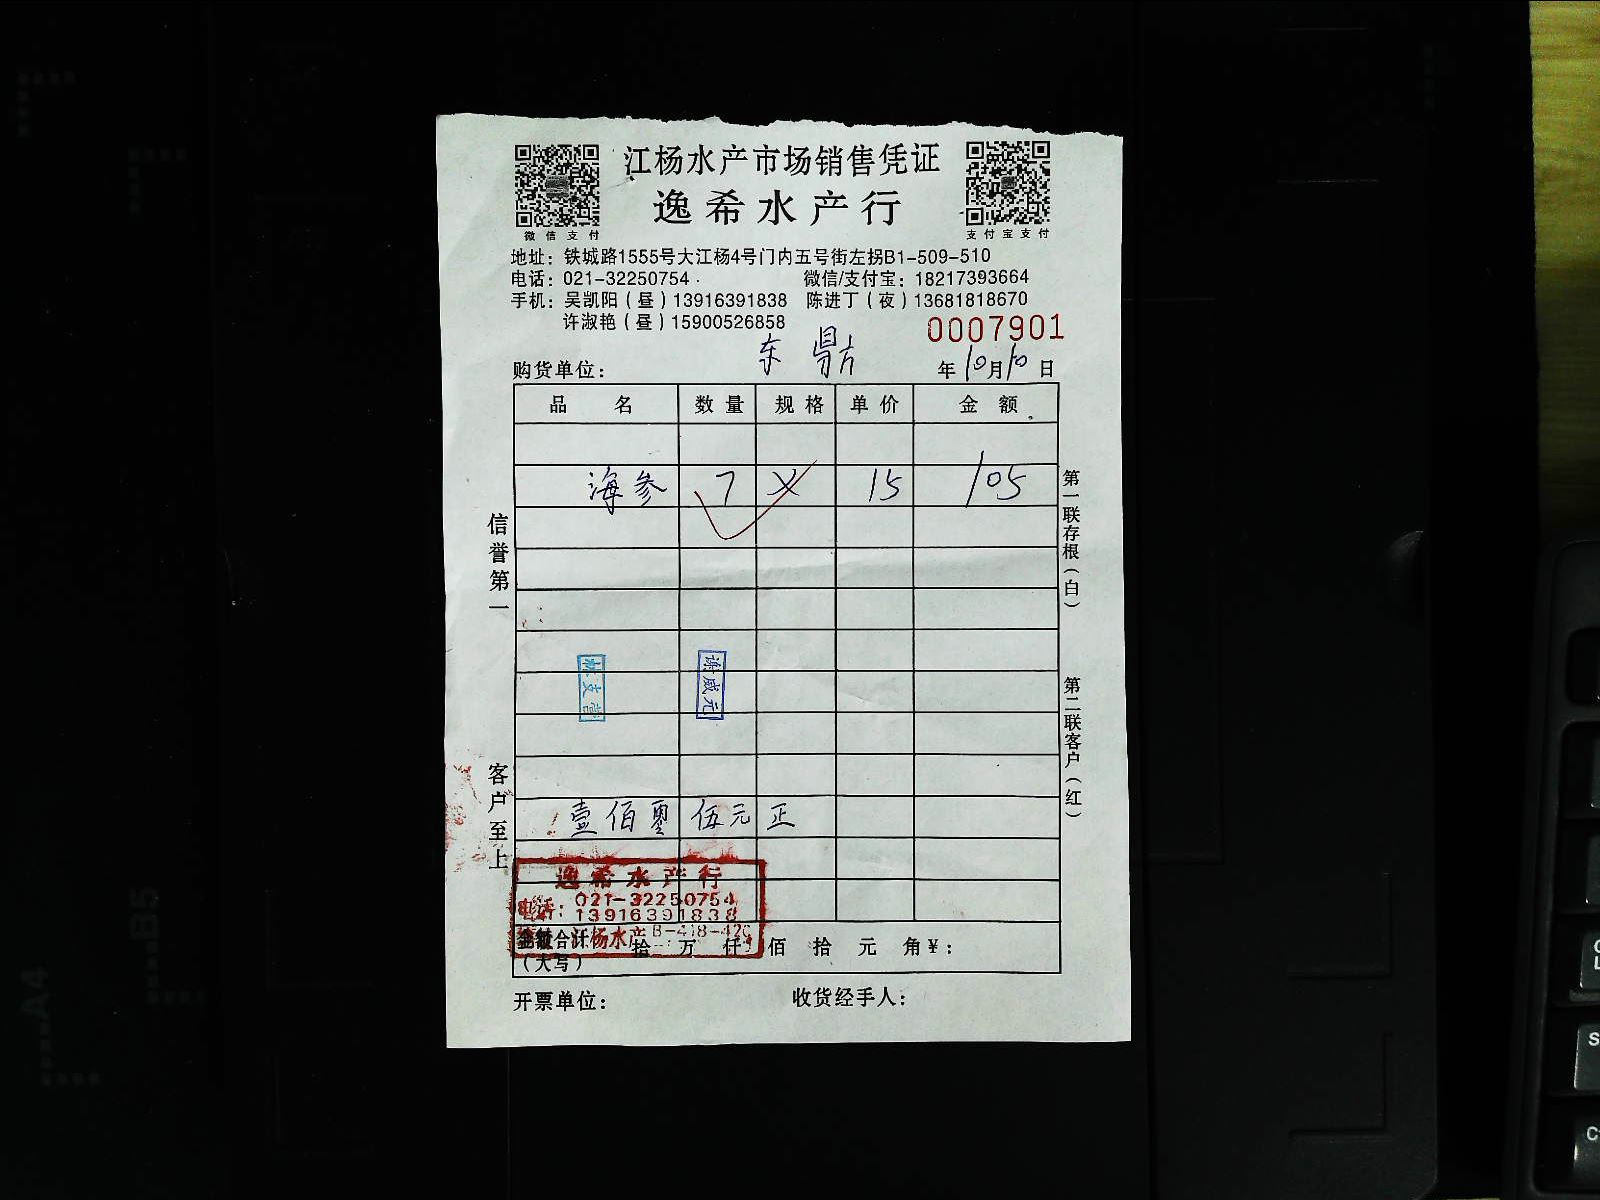 江杨水产市场销售凭证
逸希水产行
微信支付
支付宝支付
地址：铁城路1555号大江杨4号门内五号街左拐B1-509-510
电话：021-32250754 微信/支付宝：18217393664
手机：吴凯阳（昼）13916391838 陈进丁（夜）13681818670
许淑艳（昼）15900526858
0007901
购货单位：东鼎 年10月10日
品名 数量 规格 单价 金额
海参 7 15 105
壹佰零伍元正
信誉第一
客户至上
第一联存根（白）
第二联客户（红）
谢威元
逸希水产行
电话：021-32250754
13916391838
江杨水产B-418-420
金额合计（大写） 拾 万 仟 佰 拾 元 角 ¥：
开票单位： 收货经手人：
A4
B5